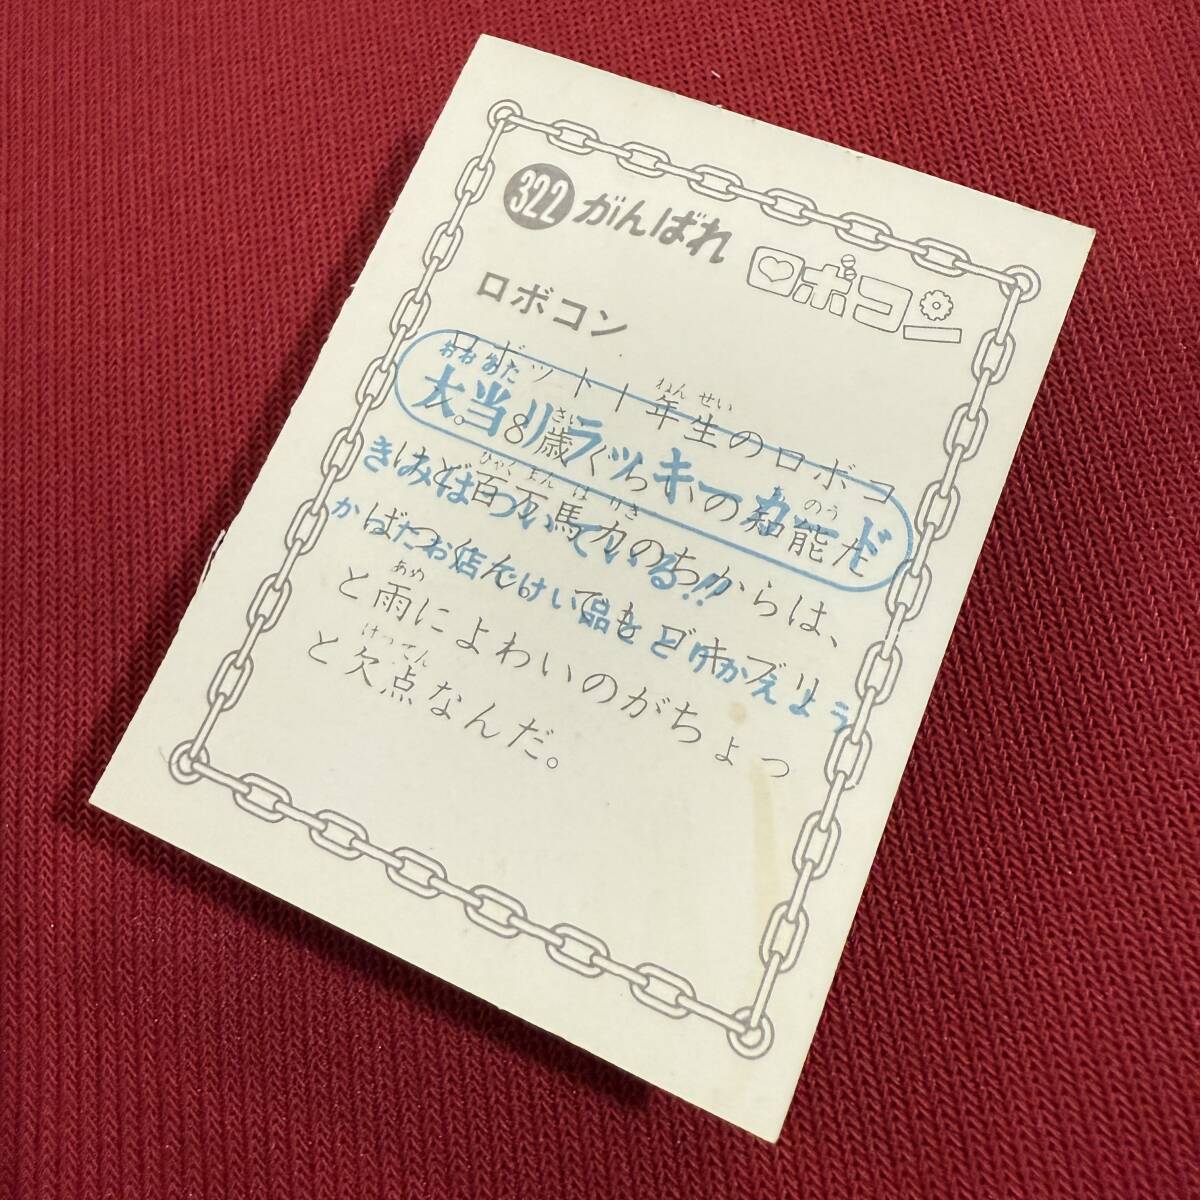 322 がんばれ ロボコン
ロボコン
ロボット1年生のロボコ
ン。8歳ぐらいの知能だ
けど百万馬力のちからは、
ばつぐん。でもゴキブリ
と雨によわいのがちょっ
と欠点なんだ。
大当りラッキーカード
きみはついている!!
かったお店でけい品ととりかえよう